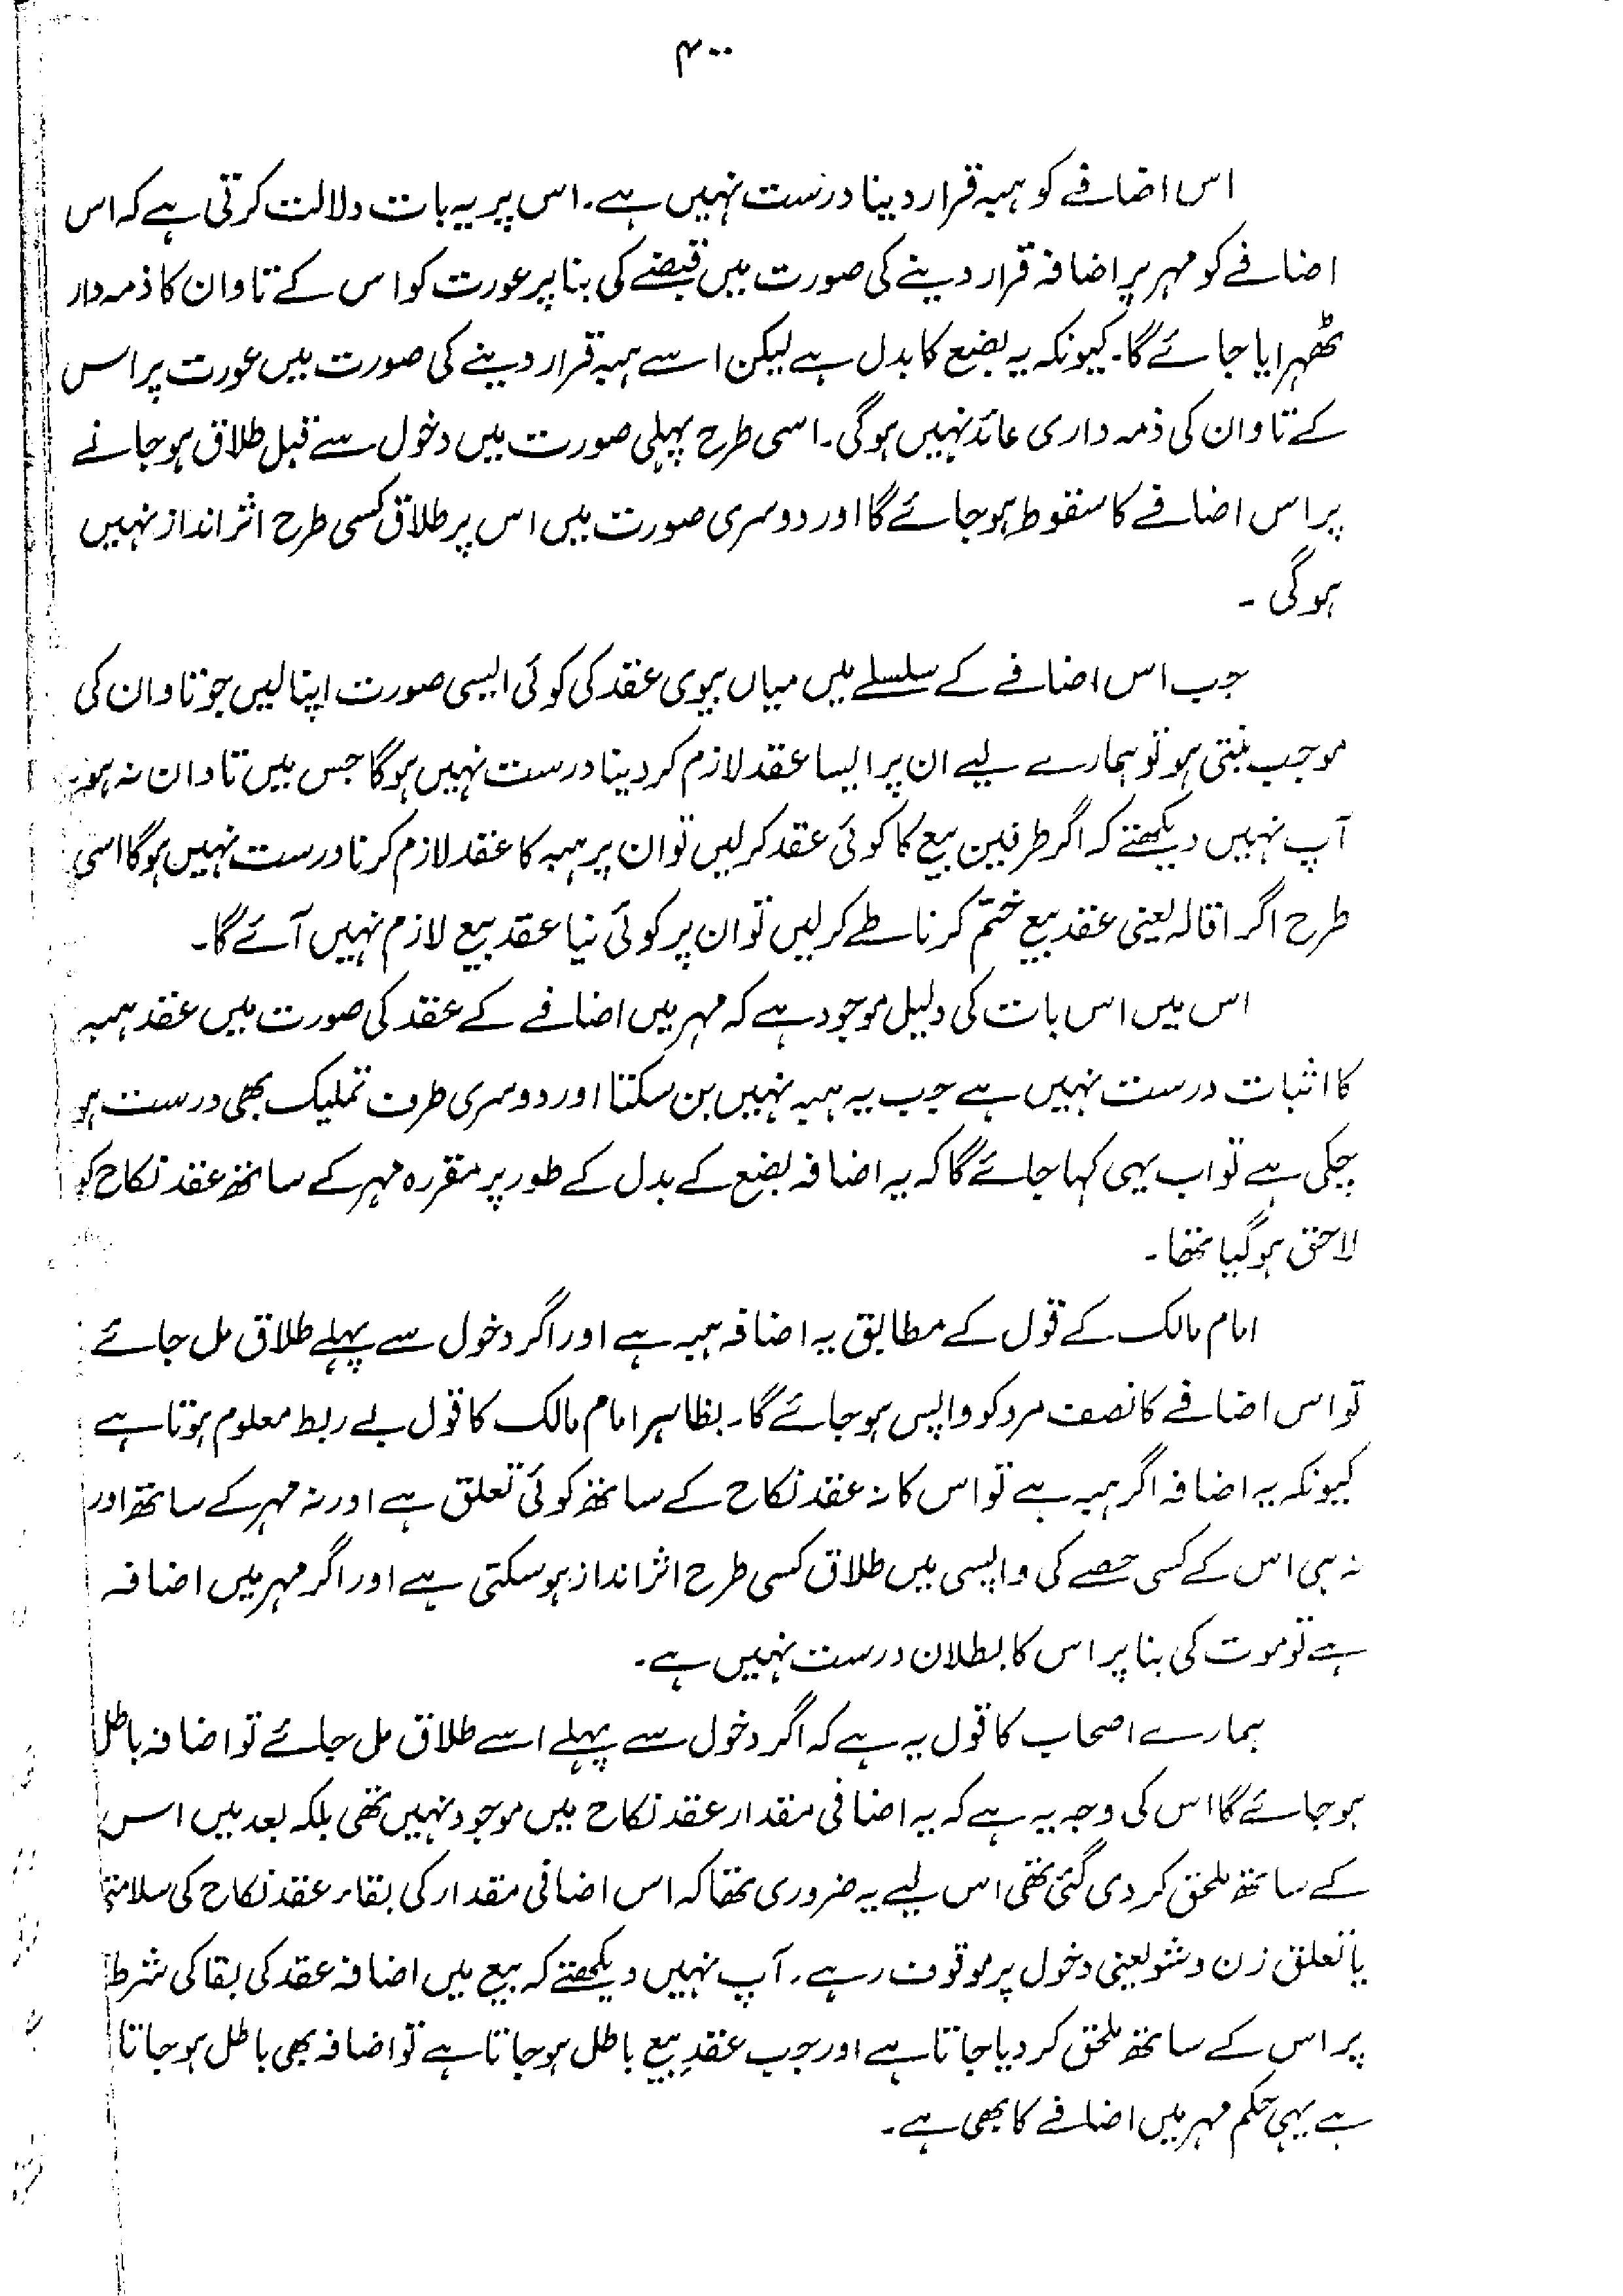 ۴۰۰
اس اضافے کو ہبہ قرار دینا درست نہیں ہے۔ اس پر یہ بات دلالت کرتی ہے کہ اس
اضافے کو مہر پر اضافہ قرار دینے کی صورت میں قبضے کی بنا پر عورت کو اس کے تاوان کا ذمہ دار
ٹھہرایا جائے گا۔ کیونکہ یہ بضع کا بدل ہے لیکن اسے ہبہ قرار دینے کی صورت میں عورت پر اس
کے تاوان کی ذمہ داری عائد نہیں ہوگی۔ اسی طرح پہلی صورت میں دخول سے قبل طلاق ہو جانے
پر اس اضافے کا سقوط ہو جائے گا اور دوسری صورت میں اس پر طلاق کسی طرح اثر انداز نہیں
ہوگی۔
جب اس اضافے کے سلسلے میں میاں بیوی عقد کی کوئی ایسی صورت اپنا لیں جو تاوان کی
موجب بنتی ہو تو ہمارے لیے ان پر ایسا عقد لازم کر دینا درست نہیں ہوگا جس میں تاوان نہ ہو۔
آپ نہیں دیکھتے کہ اگر طرفین بیع کا کوئی عقد کر لیں تو ان پر ہبہ کا عقد لازم کرنا درست نہیں ہوگا اسی
طرح اگر اقالہ یعنی عقد بیع ختم کرنا طے کر لیں تو ان پر کوئی نیا عقد بیع لازم نہیں آئے گا۔
اس میں اس بات کی دلیل موجود ہے کہ مہر میں اضافے کے عقد کی صورت میں عقد ہبہ
کا اثبات درست نہیں ہے جب یہ ہبہ نہیں بن سکتا اور دوسری طرف تملیک بھی درست ہو
چکی ہے تو اب یہی کہا جائے گا کہ یہ اضافہ بضع کے بدل کے طور پر مقررہ مہر کے ساتھ عقد نکاح کو
لاحق ہو گیا تھا۔
امام مالک کے قول کے مطابق یہ اضافہ ہبہ ہے اور اگر دخول سے پہلے طلاق مل جائے
تو اس اضافے کا نصف مرد کو واپس ہو جائے گا۔ بظاہر امام مالک کا قول بے ربط معلوم ہوتا ہے
کیونکہ یہ اضافہ اگر ہبہ ہے تو اس کا نہ عقد نکاح کے ساتھ کوئی تعلق ہے اور نہ مہر کے ساتھ اور
نہ ہی اس کے کسی حصے کی واپسی میں طلاق کسی طرح اثر انداز ہو سکتی ہے اور اگر مہر میں اضافہ
ہے تو موت کی بنا پر اس کا بطلان درست نہیں ہے۔
ہمارے اصحاب کا قول یہ ہے کہ اگر دخول سے پہلے اسے طلاق مل جائے تو اضافہ باطل
ہو جائے گا اس کی وجہ یہ ہے کہ یہ اضافی مقدار عقد نکاح میں موجود نہیں تھی بلکہ بعد میں اس
کے ساتھ ملحق کر دی گئی تھی اس لیے یہ ضروری تھا کہ اس اضافی مقدار کی بقاء عقد نکاح کی سلامتی
یا تعلق زن و شو یعنی دخول پر موقوف رہے۔ آپ نہیں دیکھتے کہ بیع میں اضافہ عقد کی بقا کی شرط
پر اس کے ساتھ ملحق کر دیا جاتا ہے اور جب عقدِ بیع باطل ہو جاتا ہے تو اضافہ بھی باطل ہو جاتا
ہے یہی حکم مہر میں اضافے کا بھی ہے۔